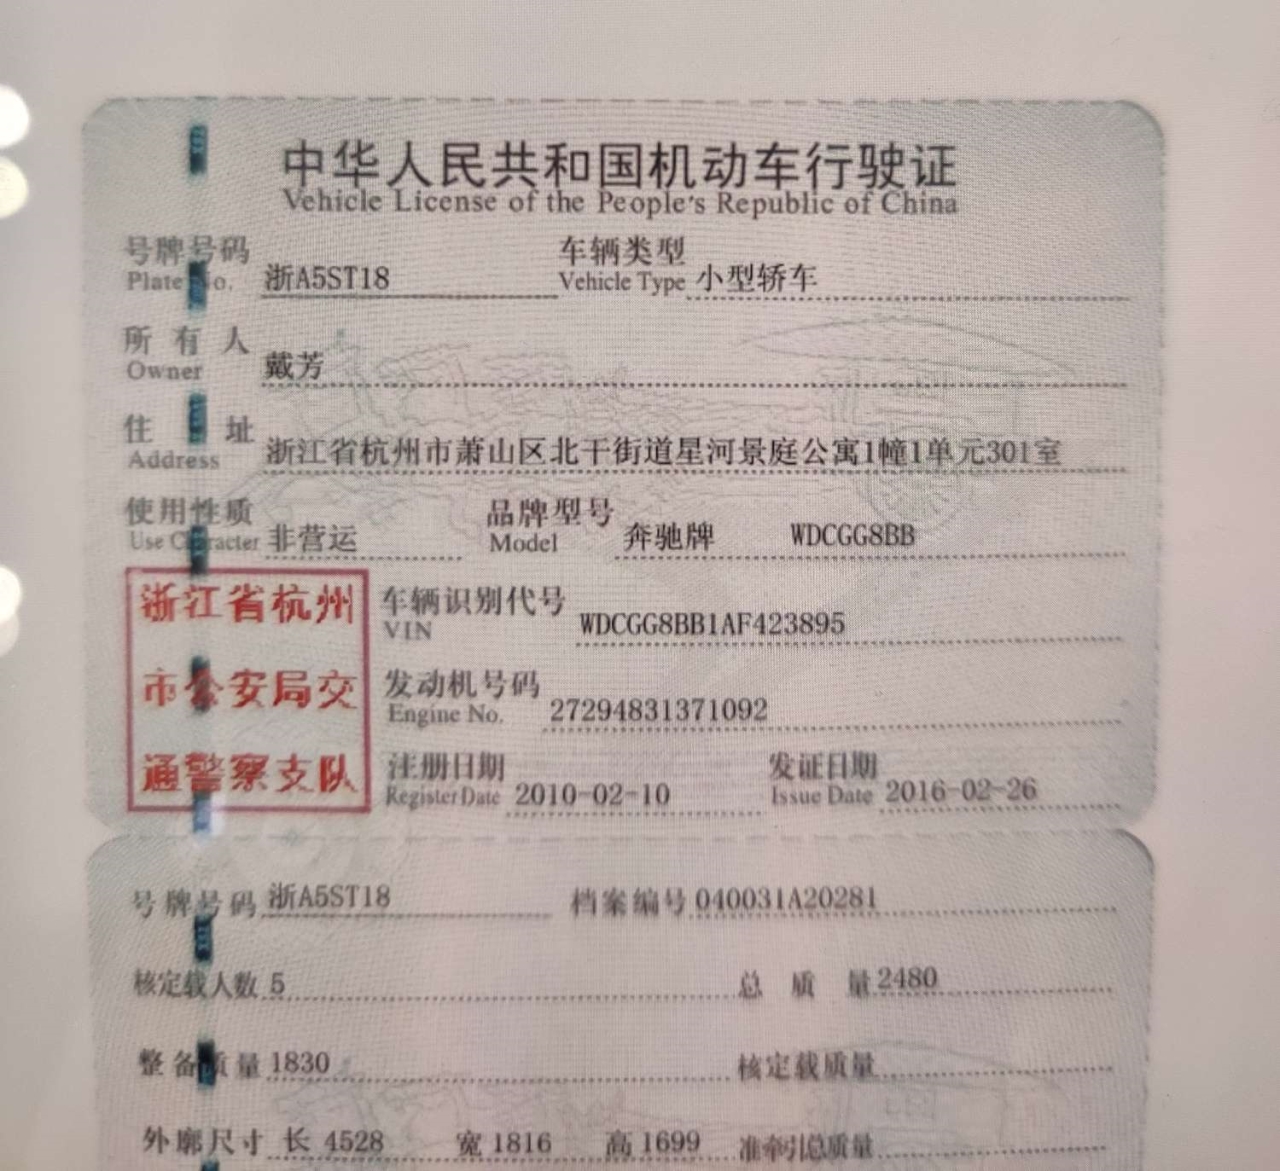 中华人民共和国机动车行驶证
Vehicle License of the People's Republic of China
号牌号码 浙A5ST18 车辆类型 小型轿车
Plate No. Vehicle Type
所有人 戴芳
Owner
住址 浙江省杭州市萧山区北干街道星河景庭公寓1幢1单元301室
Address
使用性质 非营运 品牌型号 奔驰牌 WDCGG8BB
Use Character Model
浙江省杭州
市公安局交
通警察支队
车辆识别代号 WDCGG8BB1AF423895
VIN
发动机号码 27294831371092
Engine No.
注册日期 2010-02-10 发证日期 2016-02-26
Register Date Issue Date
号牌号码 浙A5ST18 档案编号 040031A20281
核定载人数 5 总质量 2480
整备质量 1830 核定载质量
外廓尺寸 长 4528 宽 1816 高 1699 准牵引总质量